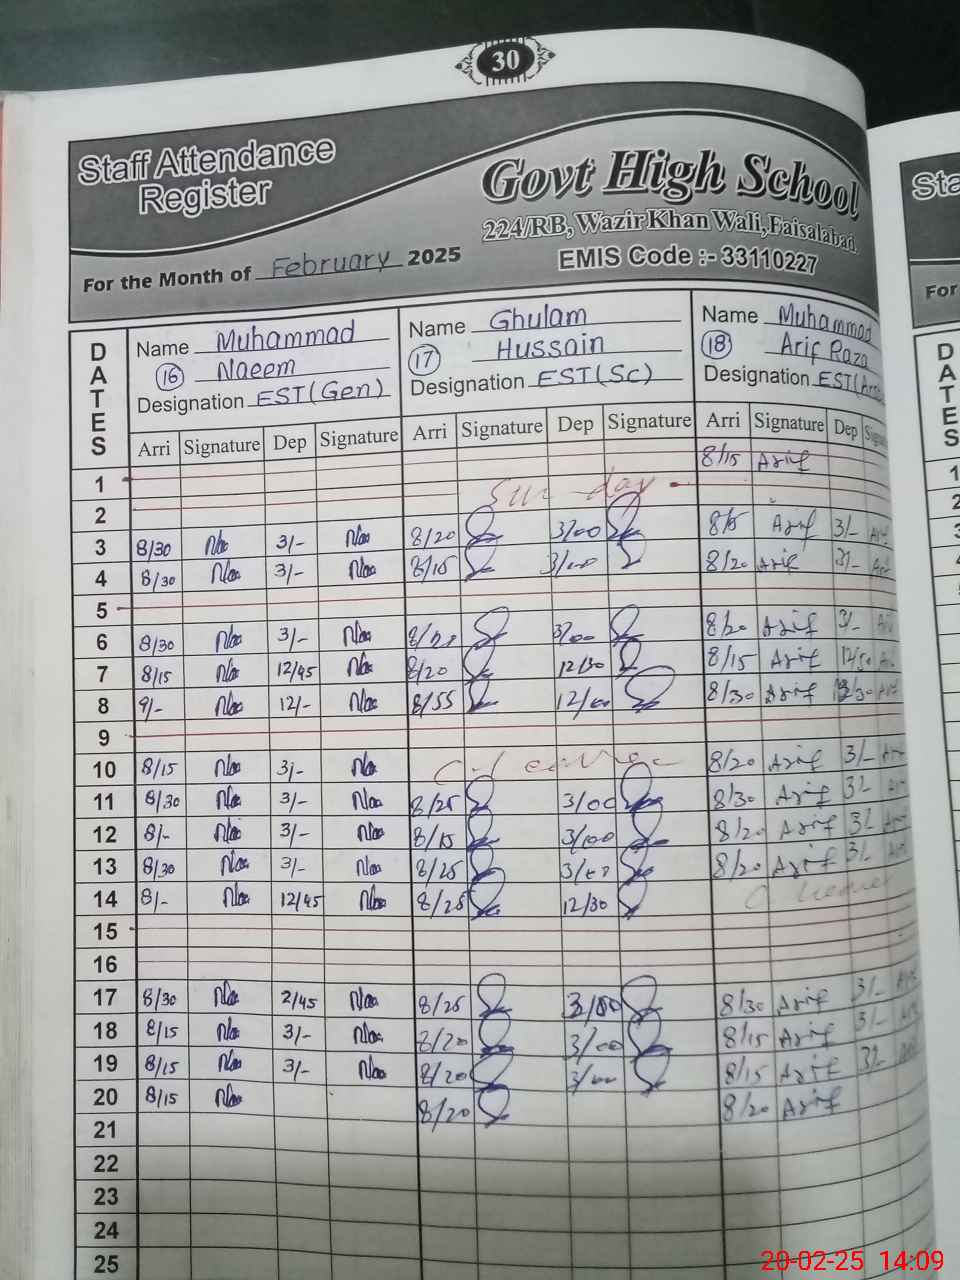 30
Staff Attendance
Register
Govt High School
224/RB, Wazir Khan Wali, Faisalabad.
For the Month of February 2025
EMIS Code :- 33110227
DATES
Name Muhammad
(16) Naeem
Designation EST(Gen)
Name Ghulam
(17) Hussain
Designation EST(Sc)
Name Muhammad
(18) Arif Raza
Designation EST(
Arri Signature Dep Signature Arri Signature Dep Signature Arri Signature Dep
8/15 Arif
1 Sunday
2
3 8/30 Na 3/- Naa 8/20 3/00 8/15 Arif 3/-
4 8/30 Naa 3/- Naa 8/15 3/00 8/20 Arif 3/-
5
6 8/30 Naa 3/- Naa 3/00 8/20 Arif 3/-
7 8/15 Naa 12/45 Naa 8/20 12/30 8/15 Arif 12/50
8 9/- Naa 12/- Naa 8/55 12/00 8/30 Arif
9
10 8/15 Naa 3/- Na 8/20 Arif 3/-
11 8/30 Naa 3/- Naa 8/25 3/00 8/30 Arif 3/-
12 8/- Naa 3/- Naa 8/15 3/00 8/20 Arif 3/-
13 8/30 Naa 3/- Naa 8/25 8/20 Arif 3/-
14 8/- Naa 12/45 Naa 8/25 12/30
15
16
17 8/30 Naa 2/45 Naa 8/25 3/00 8/30 Arif 3/-
18 8/15 Naa 3/- Naa 8/20 3/00 8/15 Arif 3/-
19 8/15 Naa 3/- Naa 8/20 3/00 8/15 Arif 3/-
20 8/15 Naa 8/20 8/20 Arif
21
22
23
24
25
Sta
For
DATES
1
2
3
20-02-25 14:09